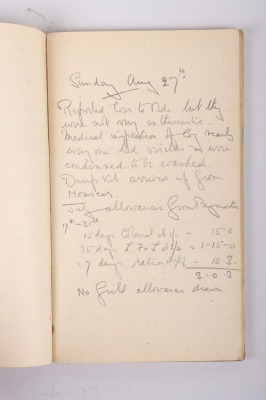 Sunday Aug 27th
Reported loss to Ode but they
were not very enthusiastic.
Medical inspection of Coy nearly
every one had vermin & were
condemned to be washed.
Dump Kit arrived up from
July allowances from Paymaster
7th - 31st
15 days Colonial at 1/- = 15-0
- 1-15-0
7 days rations 1/
10.3.
3-0.3
No Field allowance drawn